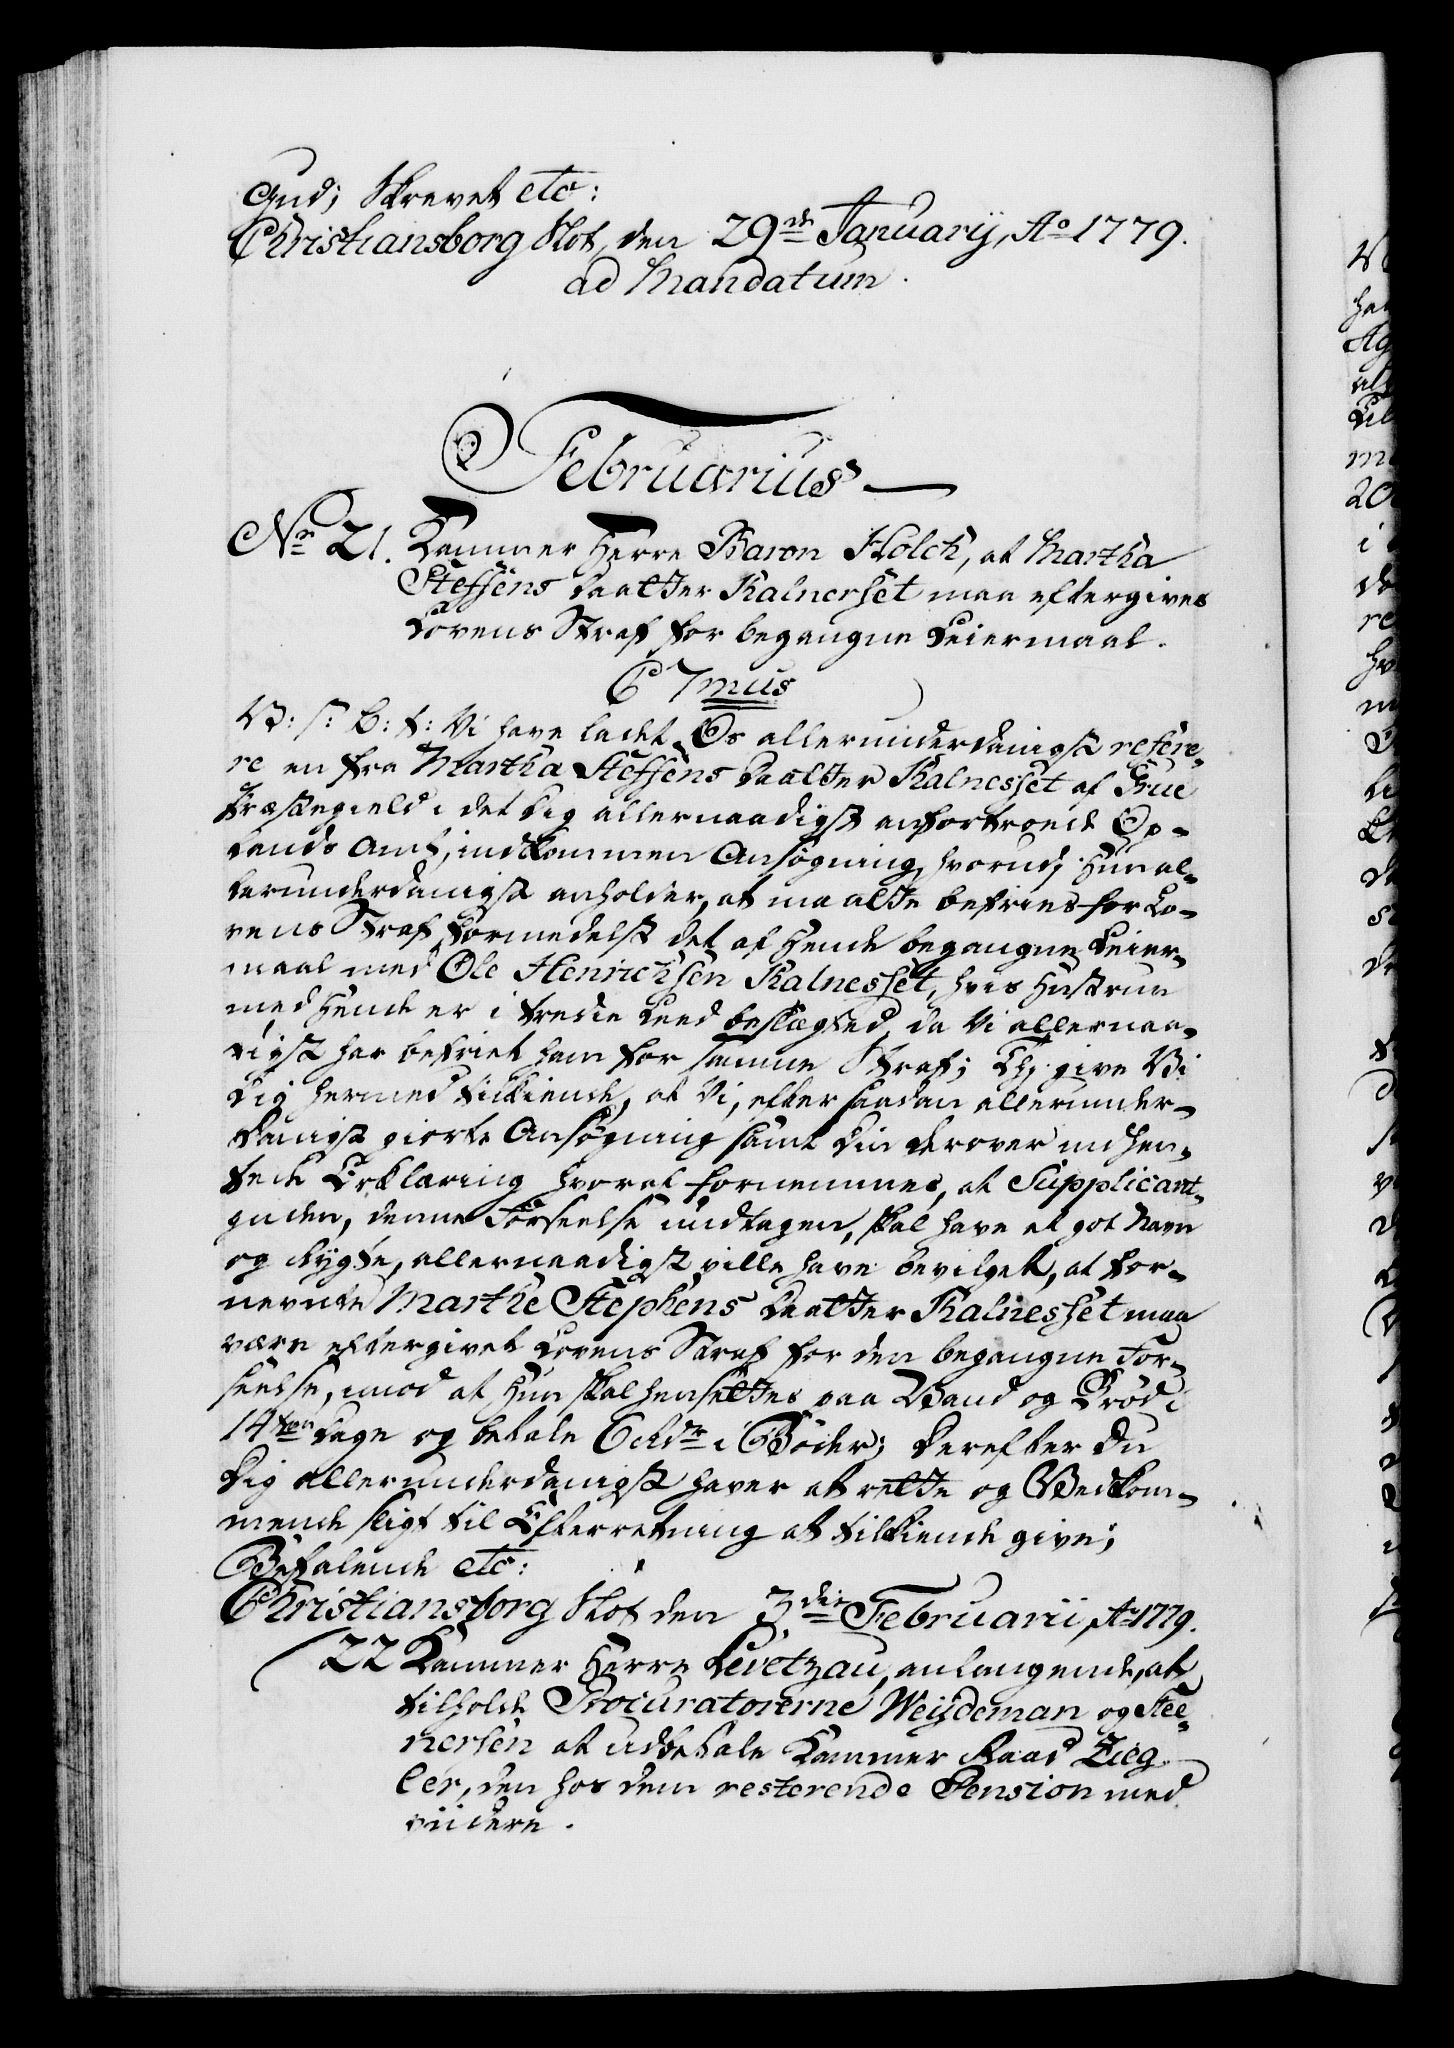 Gud; Skrevet etc:
Christiansborg Slot, den 29de Januarij, Ao 1779.
ad Mandatum.
Februarius
No 21. Kammer Herre Baron Holck, at Martha
Steffens Daatter Kalnesset maa eftergives
Lovens Straf for begangne Leiermaal.
C 7mus
V: s: G: t: Vi have ladet Os allerunderdanigst refere-
re en fra Martha Steffens Daatter Kalnesset af Grue
Præstegield i det Dig allernaadigst anfortroede Op-
lands Amt, indkommen Ansøgning, hvorudi Hun al-
lerunderdanigst anholder, at maatte befries for Lo-
vens Straf formedelst det af Hende begangne Leier-
maal med Ole Henrichsen Kalnesset, hvis Hustrue
med Hende er i tredie Leed beslægted, da Vi allernaa-
digst har befriet ham for samme Straf; Thi give Vi
Dig hermed tilkiende, at Vi, efter saadan allerunder-
danigst giorte Ansøgning samt Din derover indhen-
tede Erklæring hvoraf fornemmes, at Supplicant-
inden, denne Forseelse undtagen, skal have et got Navn
og Rygte, allernaadigst ville have bevilget, at for-
nevnte Marthe Stephens Daatter Kalnesset maa
være eftergivet Lovens Straf for den begangne For-
seelse, imod at Hun skal hensettes paa Vand og Brød i
14ten Dage og betale 6 Rdr i Bøder; Derefter Du
Dig allerunderdanigst haver at rette og Vedkom-
mende sligt til Efterretning at tilkiende give;
Befalende etc:
Christiansborg Slot den 3die Februarii, Ao 1779.
22 Kammer Herre Levetzau, anlangende, at
tilholde Procuratorerne Weijdeman og Stee-
nersen at udbetale Kammer Raad Zieg-
ler, den hos dem resterende Pension med
viidere.